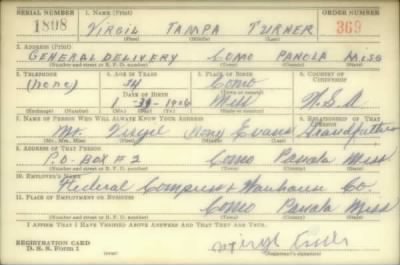 SERIAL NUMBER 1. NAME (Print) ORDER NUMBER
1808 VIRGIL TAMPA TURNER 369
(First) (Middle) (Last)
2. ADDRESS (Print)
GENERAL DELIVERY COMO PANOLA MISS
(Number and street or R. F. D. number) (Town) (County) (State)
3. TELEPHONE 4. AGE IN YEARS 5. PLACE OF BIRTH 6. COUNTRY OF CITIZENSHIP
(None) 34 Como
DATE OF BIRTH (Town or county)
1906 Miss U.S.A
(Exchange) (Number) (Mo.) (Day) (Yr.) (State or country)
7. NAME OF PERSON WHO WILL ALWAYS KNOW YOUR ADDRESS 8. RELATIONSHIP OF THAT PERSON
Mr. Virgil Evans Grandfather
(Mr., Mrs., Miss) (First) (Middle) (Last)
9. ADDRESS OF THAT PERSON
P.O. Box #2 Como Panola Miss
(Number and street or R. F. D. number) (Town) (County) (State)
10. EMPLOYER'S NAME
Federal Compress & Warehouse Co.
11. PLACE OF EMPLOYMENT OR BUSINESS
Como Panola Miss
(Number and street or R. F. D. number) (Town) (County) (State)
I AFFIRM THAT I HAVE VERIFIED ABOVE ANSWERS AND THAT THEY ARE TRUE.
REGISTRATION CARD
D. S. S. Form 1